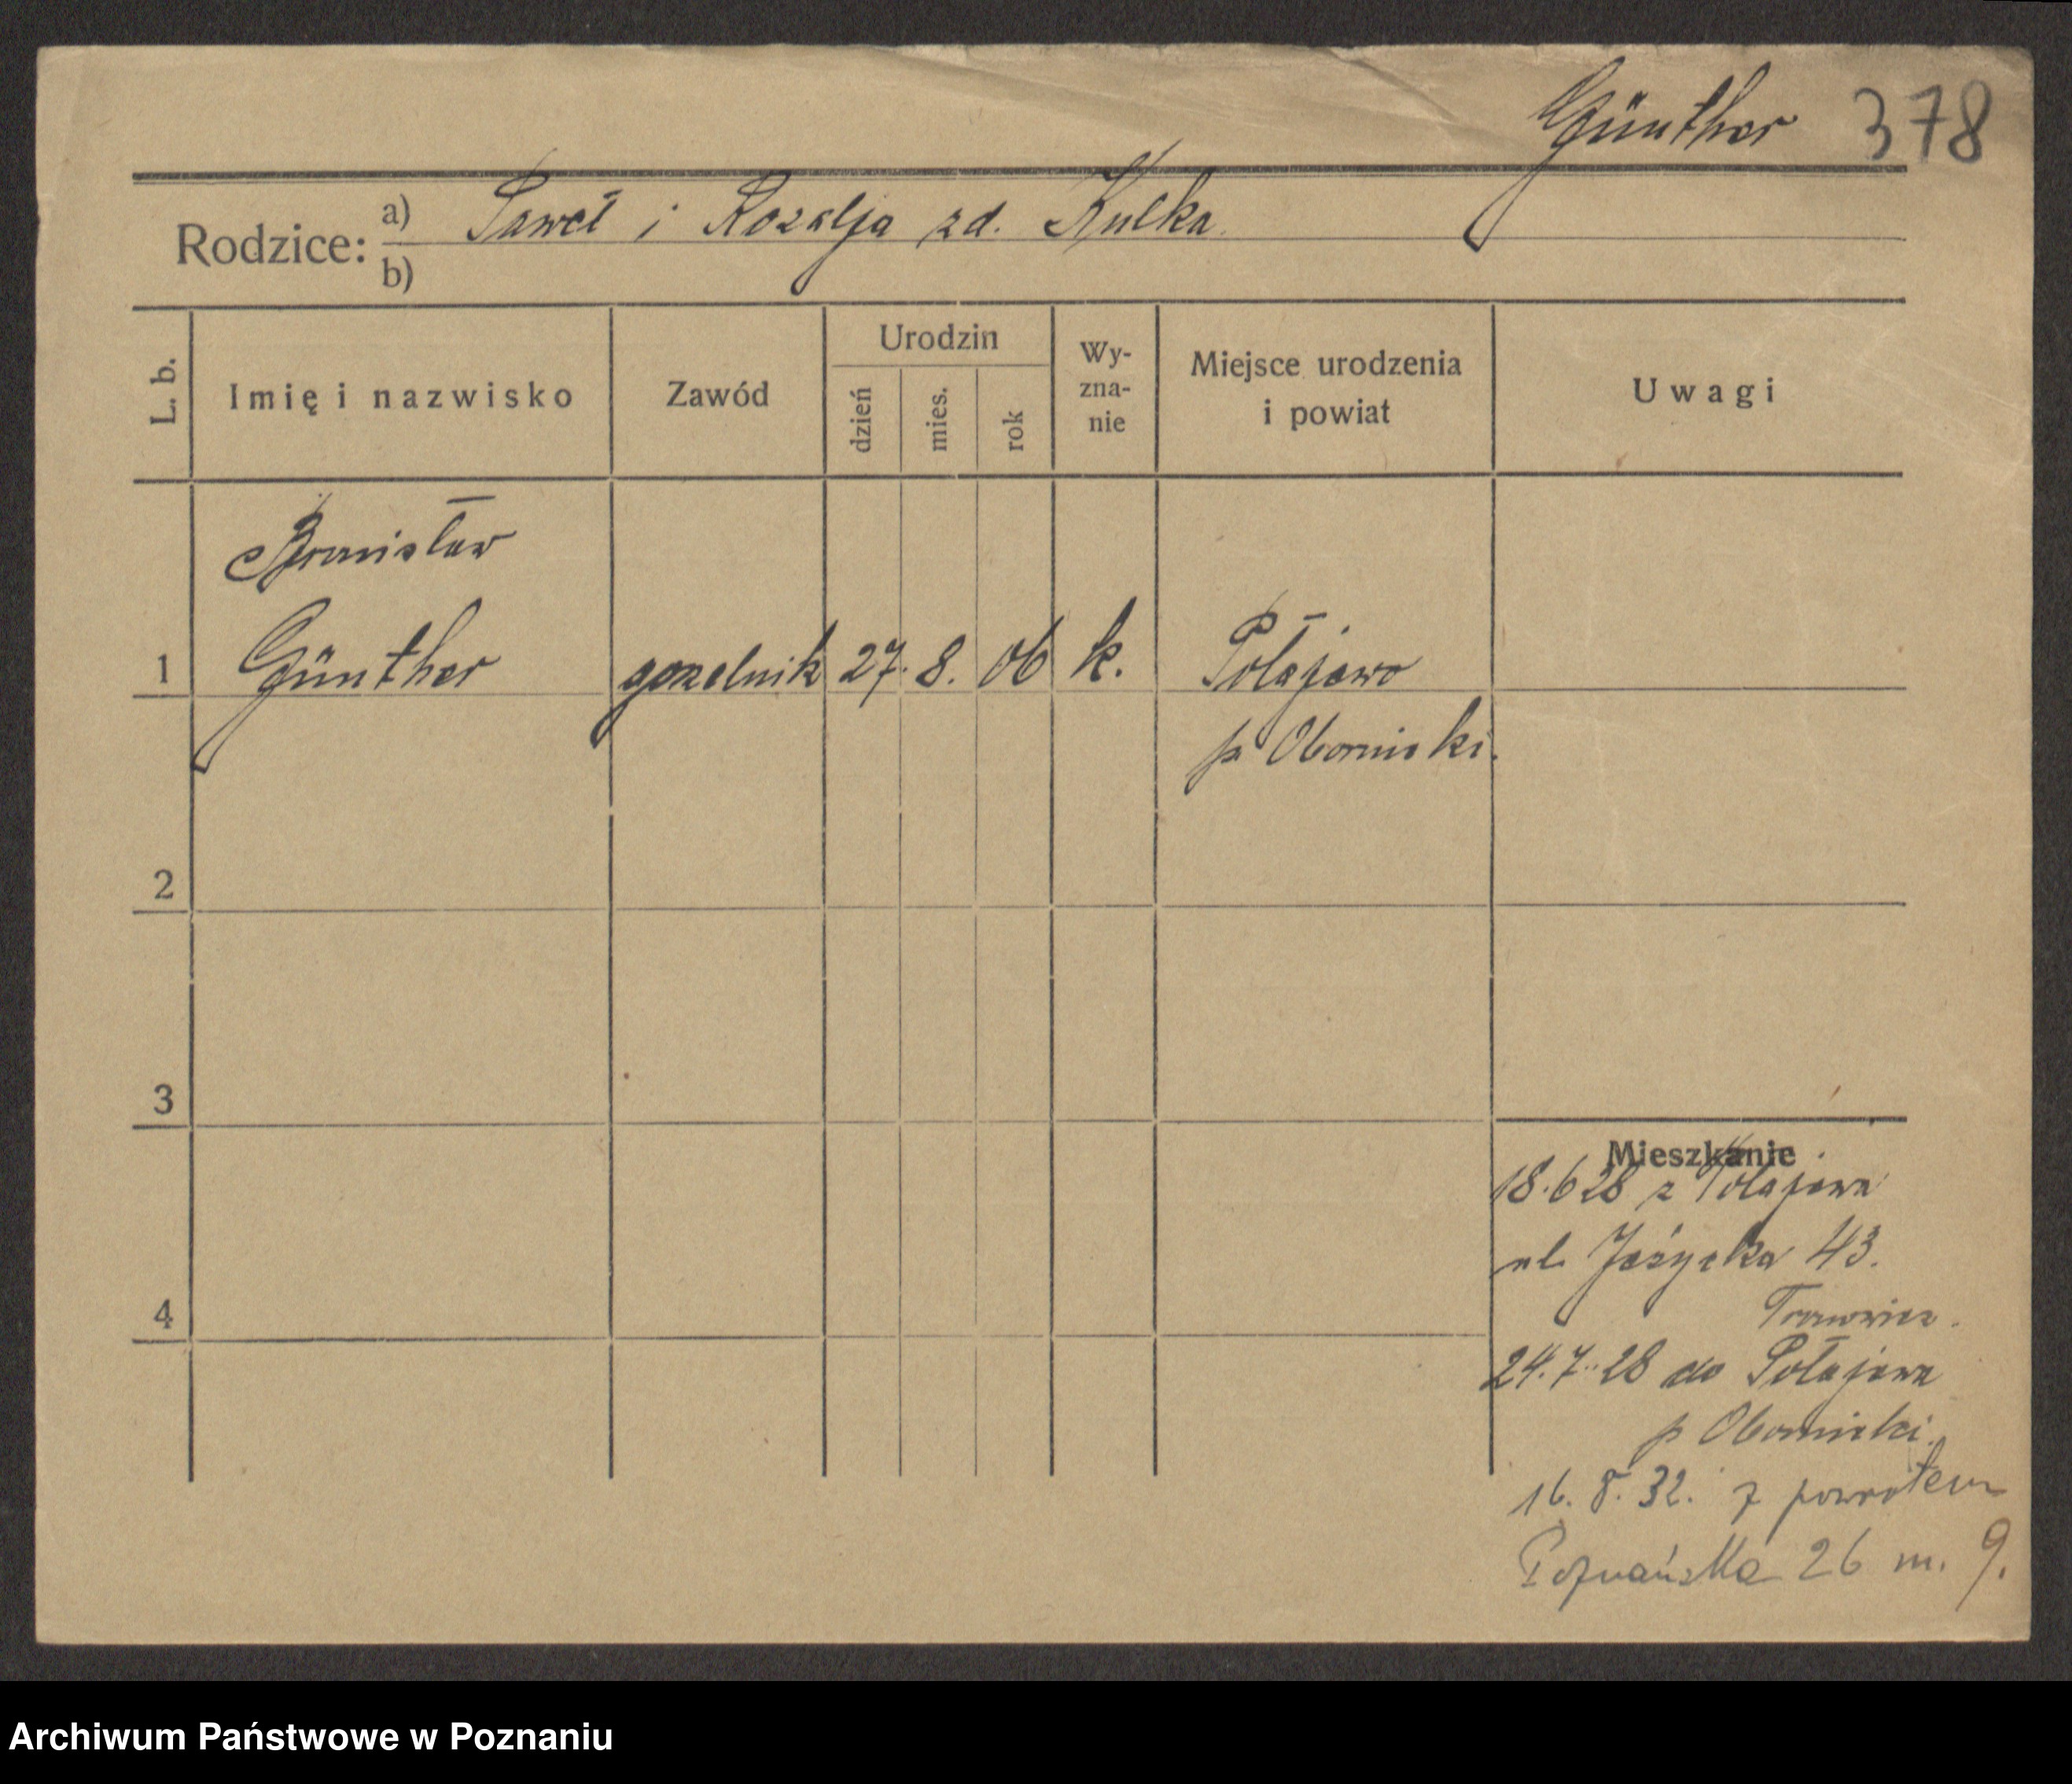 Günther 378
Rodzice: a) Paweł i Rozalja zd. Kulka
b)
L. b.
Imię i nazwisko
Zawód
Urodzin
dzień
mies.
rok
Wy-
zna-
nie
Miejsce urodzenia
i powiat
Uwagi
Bronisław
1 Günther gorzelnik 27. 8. 06 k. Połajewo
p Obornicki.
2
3
4
Mieszkanie
18.6 28 z Połajewa
ul. Jeżycka 43.
24.7.28 do Połajewa
p Obornicki.
16. 8. 32. z powrotem
Poznańska 26 m. 9.
Archiwum Państwowe w Poznaniu